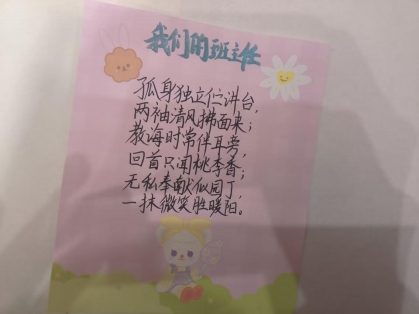 我们的班主任
孤身独立伫讲台,
两袖清风拂面来;
教诲时常伴耳旁,
回首只闻桃李香;
无私奉献似园丁,
一抹微笑胜暖阳。